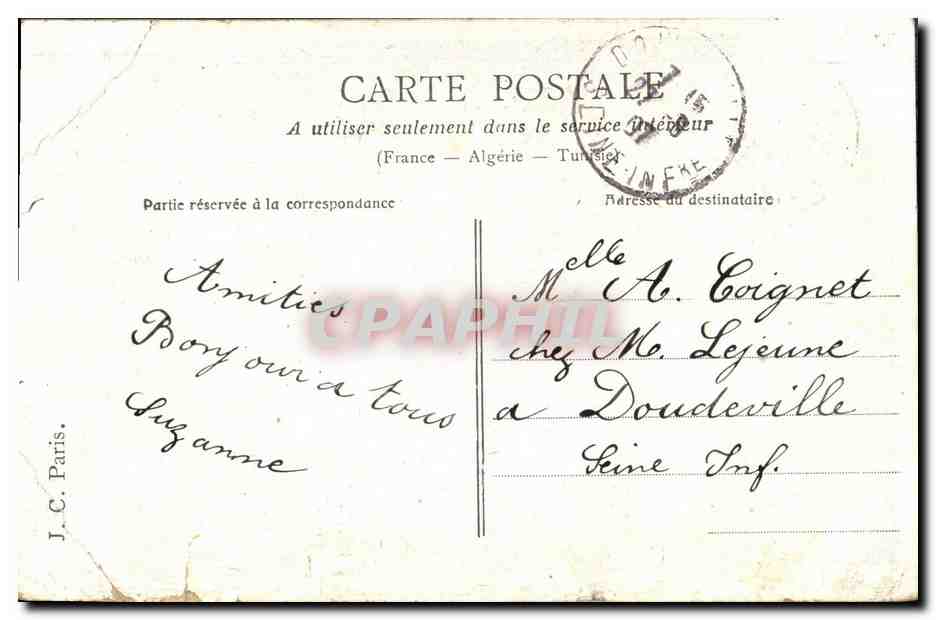 CARTE POSTALE
A utiliser seulement dans le service intérieur
(France — Algérie — Tunisie)
Partie réservée à la correspondance
Adresse du destinataire
Amitiés
Bonjour a tous
Suzanne
Melle A. Coignet
chez M. Lejeune
a Doudeville
Seine Inf.
J. C. Paris.
CPAPHIL
SEINE-INFRE